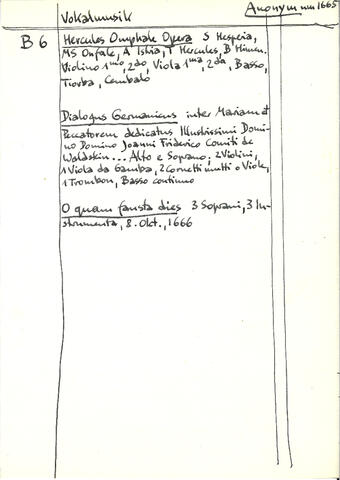 Vokalmusik Anonym um 1665
B 6 Hercules Omphale Opera S Hesperia,
MS Onfale, A Ishia, T Hercules, B Himen.
Violino 1mo, 2do, Viola 1ma, 2da, Basso,
Tiorba, Cembalo
Dialogus Germanicus inter Mariam et
Peccatorem dedicatus Illustrissimi Domi-
no Domino Joanni Friderico Comiti de
Waldstein... Alto e Soprano, 2 Violini,
1 Viola da Gamba, 2 Cornetti mutti o Viole,
1 Trombon, Basso continuo
O quam fausta dies 3 Soprani, 3 In-
strumenta, 8. Okt., 1666